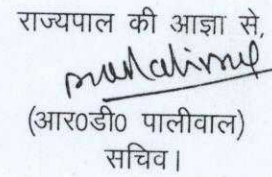 राज्यपाल की आज्ञा से,
(आर0डी0 पालीवाल)
सचिव।